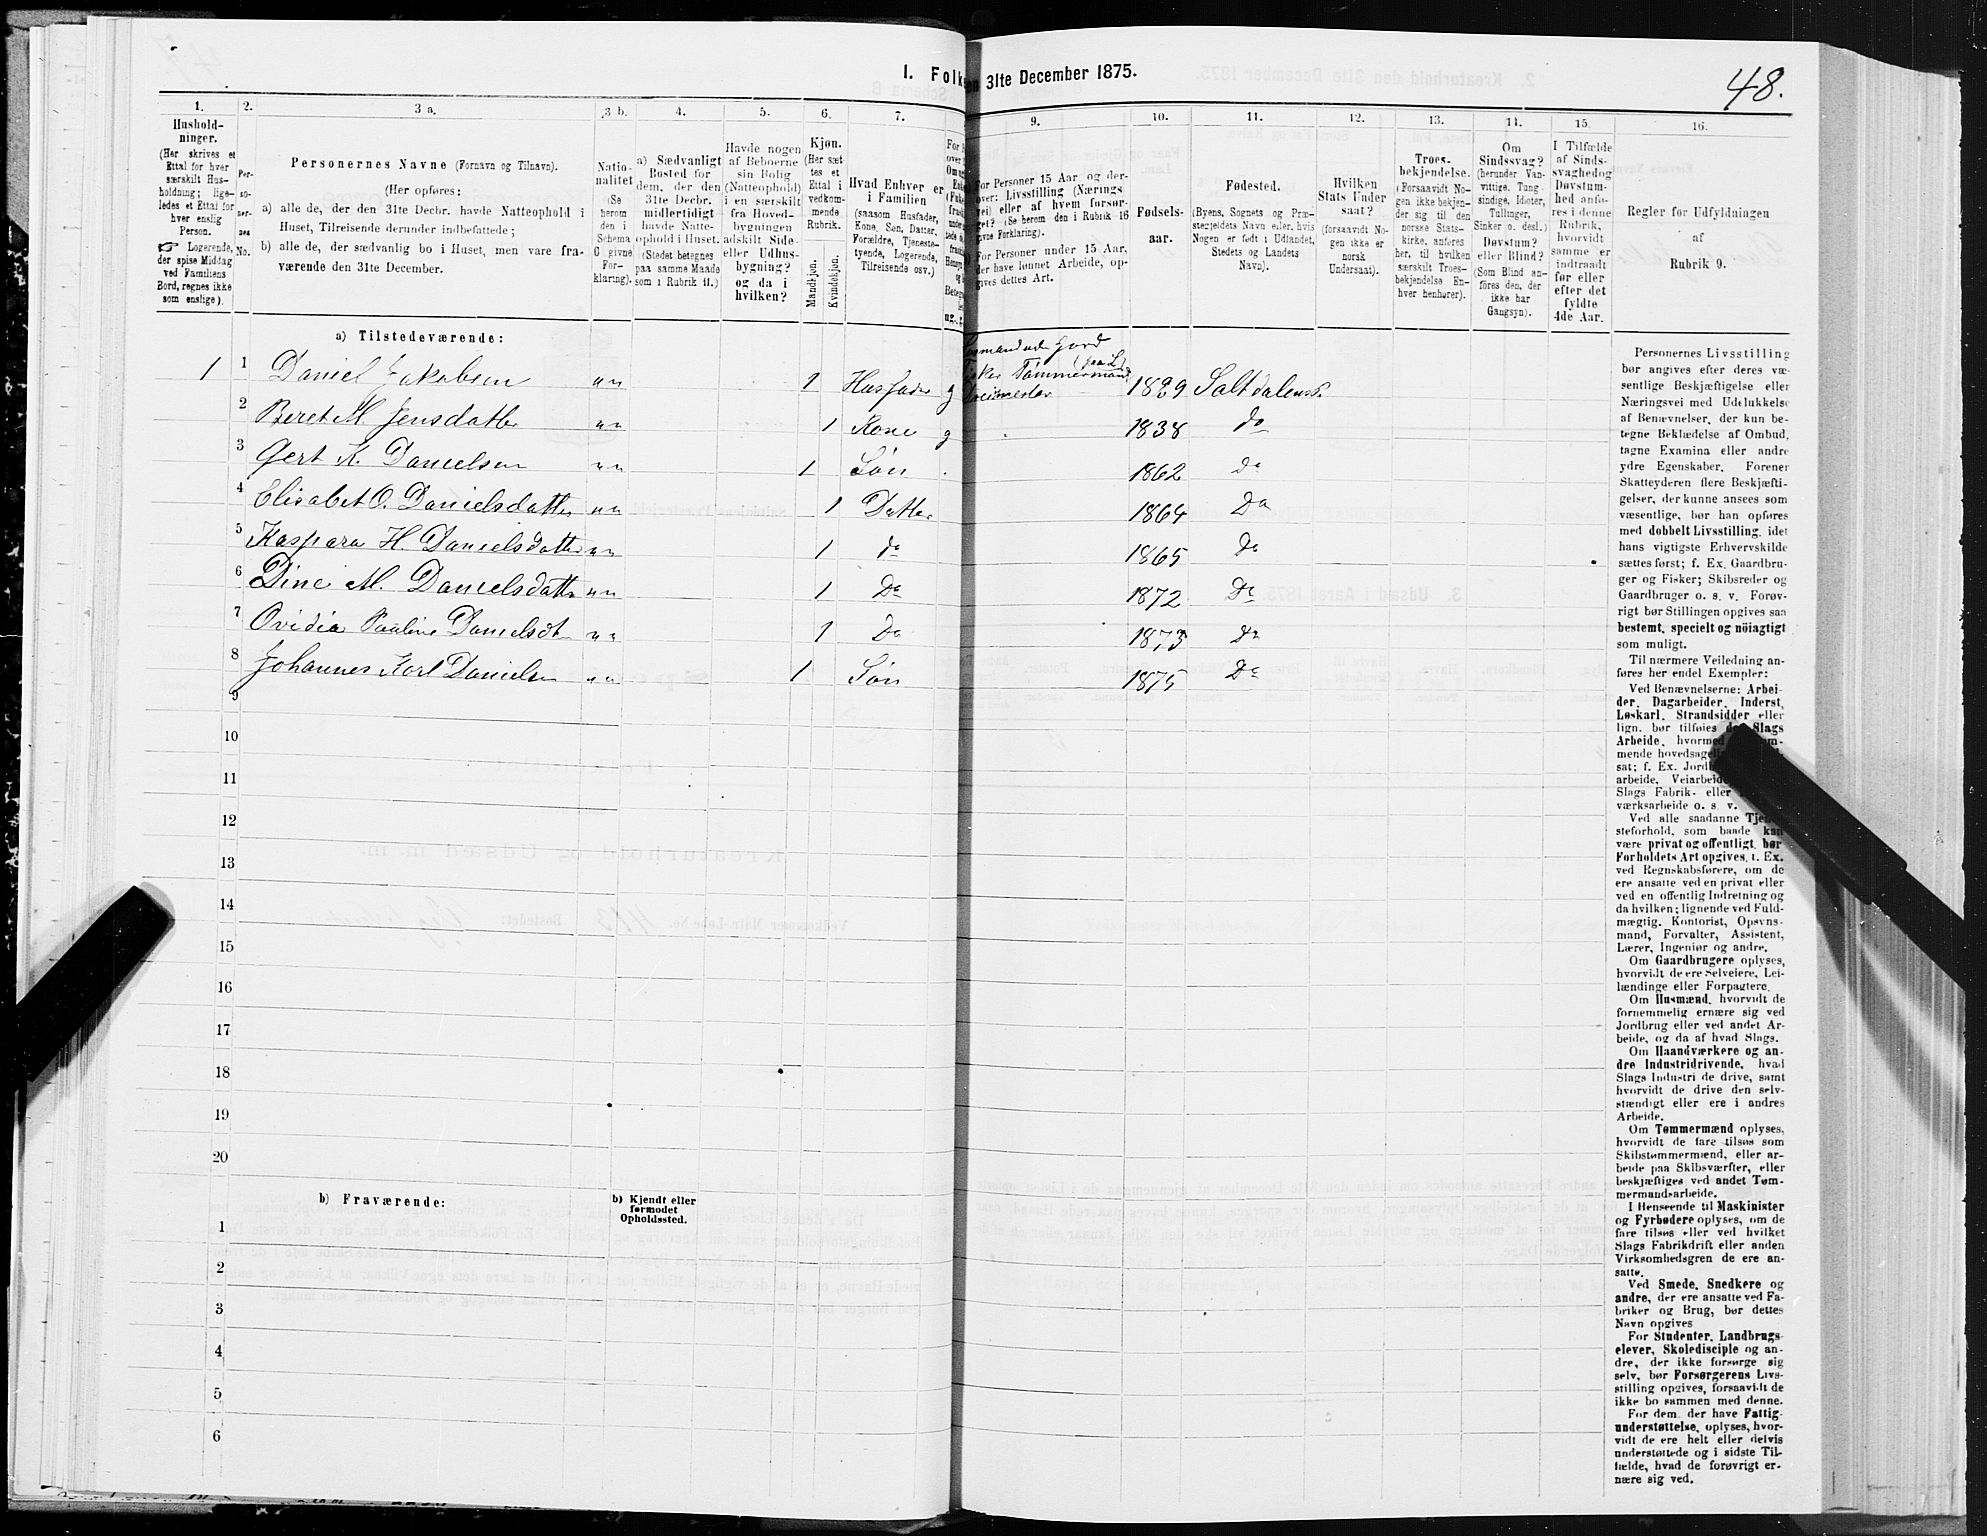 48.
1. Folk en 31te December 1875.
1. 2. 3 a. 3 b. 4. 5. 6. 7. 9. 10. 11. 12. 13. 14. 15. 16.
Hushold-
ninger.
(Her skrives et
Ettal for hver
særskilt Hus-
holdning; lige-
ledes et Ettal for
hver enslig
Person.
☞ Logerende,
der spise Middag
ved Familiens
Bord, regnes ikke
som enslige).
Per-
so-
ner-
nes
No.
Personernes Navne (Fornavn og Tilnavn).
(Her opføres:
a) alle de, der den 31te Decbr. havde Natteophold i
Huset, Tilreisende derunder indbefattede;
b) alle de, der sædvanlig bo i Huset, men vare fra-
værende den 31te December.
Natio-
nalitet
(Se
herom
den i
Schema
O givne
For-
klaring).
a) Sædvanligt
Bosted for
dem, der den
31te Decbr.
midlertidigt
havde Natte-
ophold i Huset.
(Stedet betegnes
paa samme Maade
som i Rubrik 11.)
Havde nogen
af Beboerne
sin Bolig
(Natteophold)
i en særskilt
fra Hoved-
bygningen
adskilt Side-
eller Udhus-
bygning?
og da i
hvilken?
Kjøn.
(Her sæt
tes et
Ettal i
vedkom-
mende
Rubrik.
Mandkjøn.
Kvindekjøn.
Hvad Enhver er
i Familien
(saasom Husfader,
Kone, Søn, Datter,
Forældre, Tjeneste-
tyende, Logerende,
Tilreisende osv.)
For Personer 15 Aar og der-
over: Livsstilling (Nærings
vei) eller af hvem forsør-
get? (Se herom den i Rubrik 16
givne Forklaring).
For Personer under 15 Aar,
der have lønnet Arbeide, op-
gives dettes Art.
Fødsels-
aar.
Fødested.
(Byens, Sognets og Præ-
stegjeldets Navn eller, hvis
Nogen er født i Udlandet,
Stedets og Landets
Navn).
Hvilken
Stats Under
saat?
(forsaavidt No-
gen ikke er
norsk
Undersaat).
Troes-
bekjendelse.
(Forsaavidt No-
gen ikke bekjen-
der sig til den
norske Stats-
kirke, anføres
her, til hvilken
særskilt Troes-
bekjendelse En-
hver henhører).
Om
Sindssvag?
(herunder Van-
vittige, Tung-
sindige, Idioter,
Tullinger,
Sinker o. desl.)
Døvstum?
eller Blind?
(Som Blind an-
føres den, der
ikke har
Gangsyn).
I Tilfælde
af Sinds-
svaghed og
Døvstum-
hed anfø-
res i denne
Rubrik,
hvorvidt
samme er
indtraadt
før eller
efter det
fyldte
4de Aar.
Regler for Udfyldningen
af
Rubrik 9.
a) Tilstedeværende:
1 1 Daniel Jakobsen nn 1 Husfader g Tømmermand 1829 Saltdalens P.
2 Beret M Jensdatter nn 1 Kone g 1838 do
3 Gert K. Danielsen nn 1 Søn 1862 do
4 Elisabet O. Danielsdatter nn 1 Datter 1864 Do
5 Kaspara H. Danielsdatter nn 1 do 1865 Do
6 Dine M. Danielsdatter nn 1 Do 1872 Do
7 Ovidia Pauline Danielsdt nn 1 Do 1873 Do
8 Johannes Karl Danielsen nn 1 Søn 1875 Do
9
10
11
12
13
14
15
16
17
18
19
20
b) Fraværende:
b) Kjendt eller
formodet
Opholdssted.
1
2
3
4
5
6
Personernes Livsstilling
bør angives efter deres væ-
sentlige Beskjæftigelse eller
Næringsvei med Udelukkelse
af Benævnelser, der kun be-
tegne Beklædelse af Ombud,
tagne Examina eller andre
ydre Egenskaber. Forener
Skatteyderen flere Beskjæfti-
gelser, der kunne ansees som
væsentlige, bør han opføres
med dobbelt Livsstilling, idet
hans vigtigste Erhvervskilde
sættes først; f. Ex. Gaardbru-
ger og Fisker; Skibsreder og
Gaardbruger o. s. v. Forøv-
rigt bør Stillingen opgives saa
bestemt, specielt og nöiagtigt
som muligt.
Til nærmere Veiledning an-
føres her endel Exempler:
Ved Benævnelserne: Arbei-
der, Dagarbeider, Inderst,
Løskarl, Strandsidder eller
lign. bør tilføies Slags
Arbeide, hvormed
mende hovedsagelig
sat; f. Ex.
arbeide,
Slags Fabrik- eller
værksarbeide o. s. v.
Ved alle saadanne
steforhold, som baade kan
være privat og offentligt, bør
Forholdets Art opgives, t. Ex.
ved Regnskabsførere, om de
ere ansatte ved en privat eller
ved en offentlig Indretning og
da hvilken; lignende ved Fuld-
mægtig, Kontorist, Opsyns-
mand, Forvalter, Assistent,
Lærer, Ingeniør og andre.
Om Gaardbrugere oplyses,
hvorvidt de ere Selveiere, Lei-
lændinge eller Forpagtere.
Om Husmænd, hvorvidt de
fornemmelig ernære sig ved
Jordbrug eller ved andet Ar-
beide, og da af hvad Slags.
Om Haandværkere og an-
dre Industridrivende, hvad
Slags Industri de drive, samt
hvorvidt de drive den selv-
stændigt eller ere i andres
Arbeide.
Om Tømmermænd oplyses,
hvorvidt de fare tilsøs som
Skibstømmermænd, eller ar-
beide paa Skibsværfter, eller
beskjæftiges ved andet Tøm-
mermandsarbeide.
I Henseende til Maskinister
og Fyrbødere oplyses, om de
fare tilsøs eller ved hvilket
Slags Fabrikdrift eller anden
Virksomhedsgren de ere an-
satte.
Ved Smede, Snedkere og
andre, der ere ansatte ved Fa-
briker og Brug, bør dettes
Navn opgives
For Studenter, Landbrugs-
elever, Skoledisciple og an-
dre, der ikke forsørge sig
selv, bør Forsørgerens Livs-
stilling opgives, forsaavidt de
ikke bo sammen med denne.
For dem, der have Fattig-
understøttelse, oplyses, hvor-
vidt de ere helt eller delvis
understøttede og i sidste Til-
fælde, hvad de forøvrigt er-
nære sig ved.